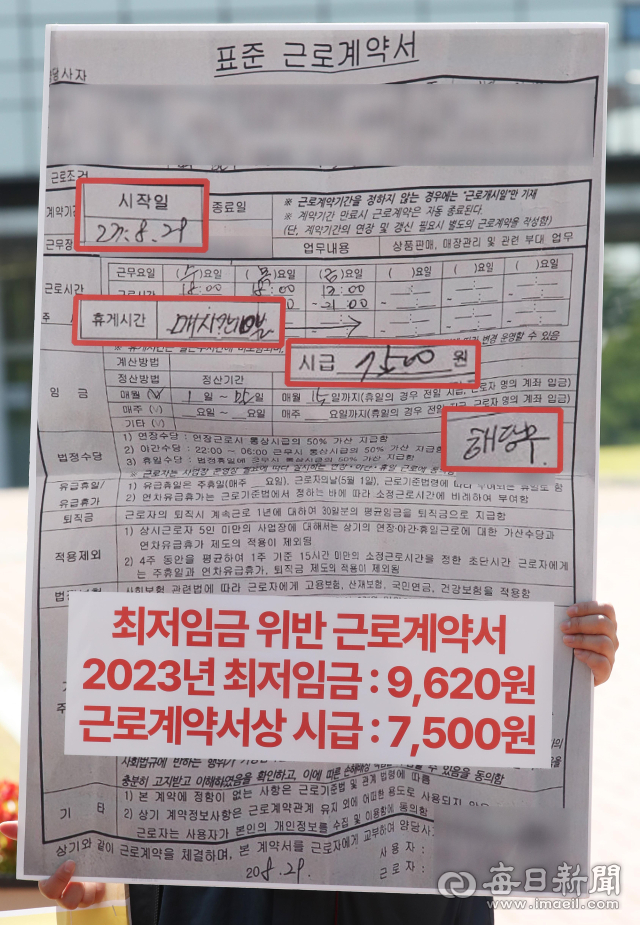 표준 근로계약서
당사자
근로조건
계약기간 시작일 종료일 ※ 근로계약기간을 정하지 않는 경우에는 "근로개시일"만 기재
※ 계약기간 만료시 근로계약은 자동 종료된다.
(단, 계약기간의 연장 및 갱신 필요시 별도의 근로계약을 작성함)
8.29
업무내용 상품판매, 매장관리 및 관련 부대 업무
근로시간 근무요일 ( )요일 ( )요일 ( )요일 ( )요일 ( )요일 ( )요일
18:00
21:00
휴게시간
변경 운영할 수 있음
시급 7500 원
임 금 계산방법
정산방법 정산기간
매월 (V) 1일 ~ 매월 15일까지(휴일의 경우 전일 시급, 근로자 명의 계좌 입금)
매주 (V) 요일 ~ 요일 매주 요일까지(휴일의 경우 전일
기타 (V)
해당무
법정수당 1) 연장수당 : 연장근로시 통상시급의 50% 가산 지급함
2) 야간수당 : 22:00 ~ 06:00 근무시 통상시급의 50% 가산 지급함
3) 휴일수당 : 통상시급의 50% 가산 지급함
유급휴일/ 1) 유급휴일은 주휴일(매주 요일), 근로자의날(5월 1일), 근로기준법령에 따라
유급휴가 2) 연차유급휴가는 근로기준법에서 정하는 바에 따라 소정근로시간에 비례하여 부여함
퇴직금 근로자의 퇴직시 계속근로 1년에 대하여 30일분의 평균임금을 퇴직금으로 지급함
적용제외 1) 상시근로자 5인 미만의 사업장에 대해서는 상기의 연장·야간·휴일근로에 대한 가산수당과
연차유급휴가 제도의 적용이 제외됨
2) 4주 동안을 평균하여 1주 기준 15시간 미만의 소정근로시간을 정한 초단시간 근로자에게
는 주휴일과 연차유급휴가, 퇴직금 제도의 적용이 제외됨
사회보험 관련법에 따라 근로자에게 고용보험, 산재보험, 국민연금, 건강보험을 적용함
최저임금 위반 근로계약서
2023년 최저임금 : 9,620원
근로계약서상 시급 : 7,500원
충분히 고지받고 이해하였음을 확인하고, 이에 따른 있음을 동의함
기 타 1) 본 계약에 정함이 없는 사항은 근로기준법 및 관계 법령에 따름
2) 상기 계약정보사항은 근로계약관계 유지 외에 어떠한 용도로 사용되지
근로자는 사용자가 본인의 개인정보를 수집 및 이용함에 동의함
상기와 같이 근로계약을 체결하며, 본 계약서를 근로자에게 교부하여 양당사
20 8.29. 사 용 자 :
근 로 자 :
每日新聞
www.imaeil.com